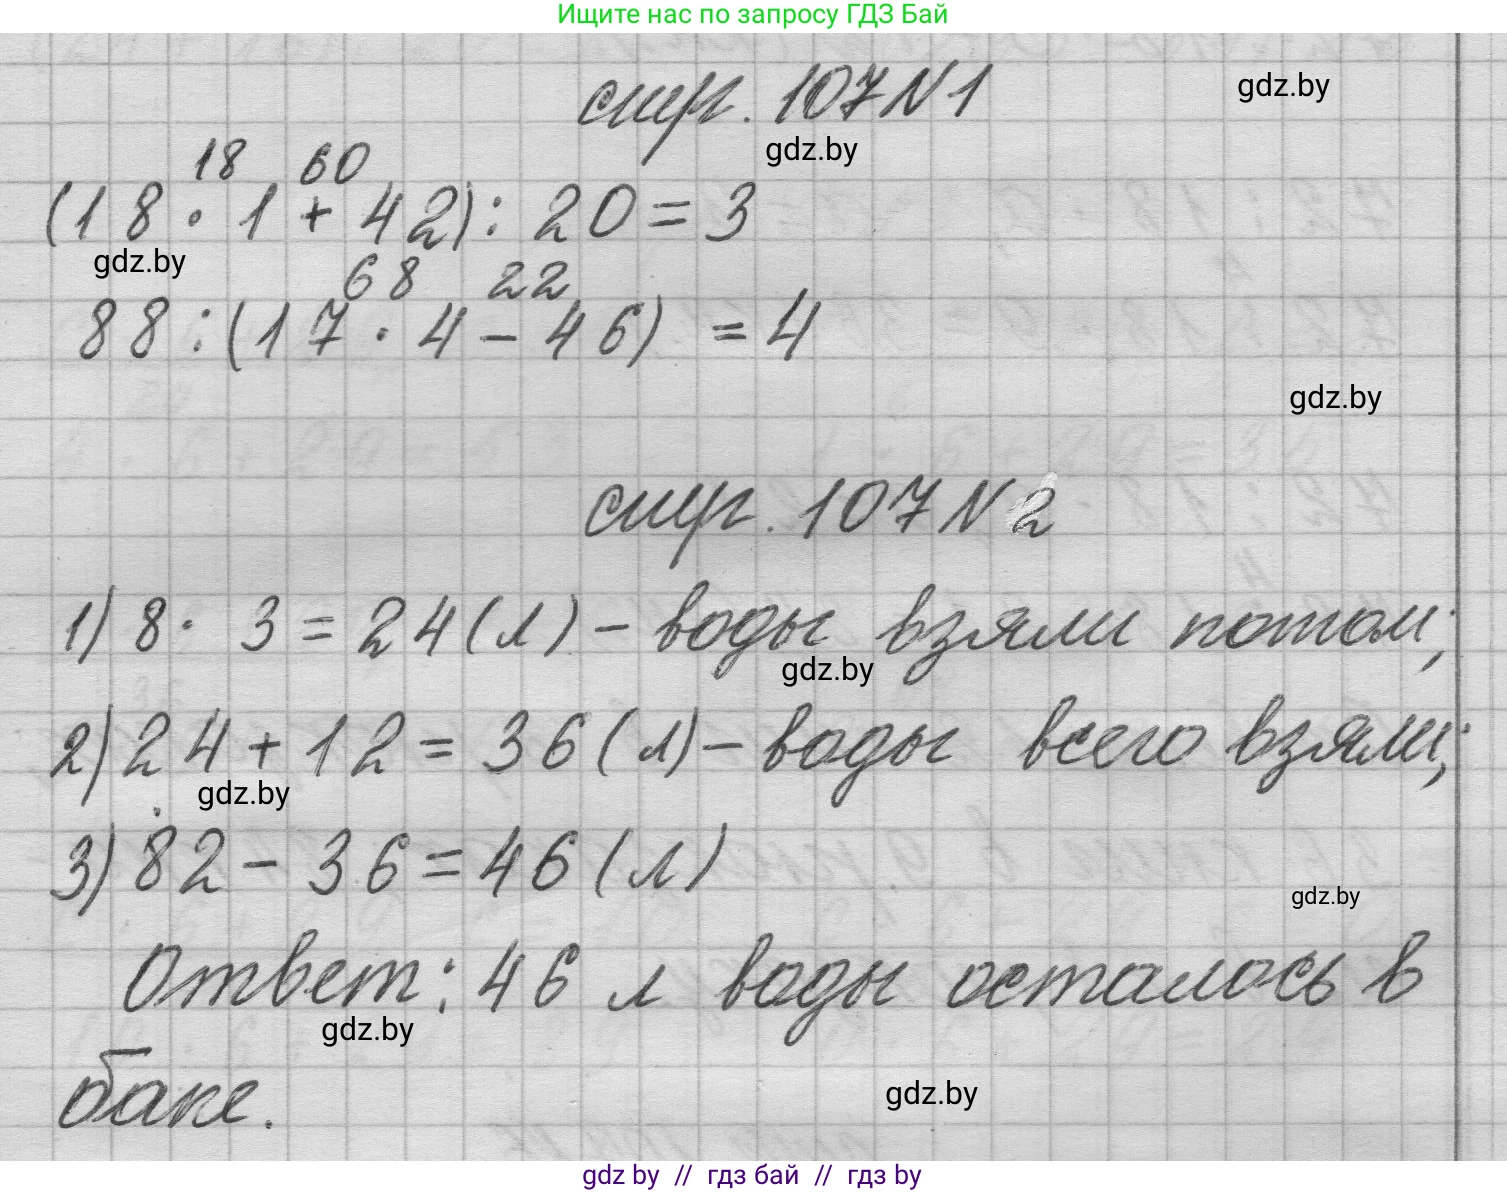 Ищите нас по запросу ГДЗ Бай
стр. 107 N 1
gdz.by
gdz.by
18 60
(18 · 1 + 42) : 20 = 3
gdz.by
68 22
88 : (17 · 4 - 46) = 4
gdz.by
стр. 107 N 2
1) 8 · 3 = 24 (л) - воды взяли потом;
gdz.by
2) 24 + 12 = 36 (л) - воды всего взяли;
gdz.by
3) 82 - 36 = 46 (л)
gdz.by
Ответ: 46 л воды осталось в
gdz.by
баке.
gdz.by
gdz by // гдз бай // гдз by